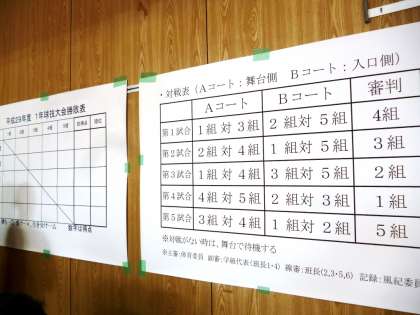 平成29年度 1年球技大会勝敗表
・対戦表（Aコート：舞台側 Bコート：入口側）
Aコート Bコート 審判
第1試合 1組 対 3組 2組 対 5組 4組
第2試合 2組 対 4組 1組 対 5組 3組
第3試合 1組 対 4組 3組 対 5組 2組
第4試合 4組 対 5組 2組 対 3組 1組
第5試合 3組 対 4組 1組 対 2組 5組
※対戦がない時は、舞台で待機する
※主審：体育委員 副審：学級代表(班長1・4) 線審：班長(2,3・5,6) 記録：風紀委員